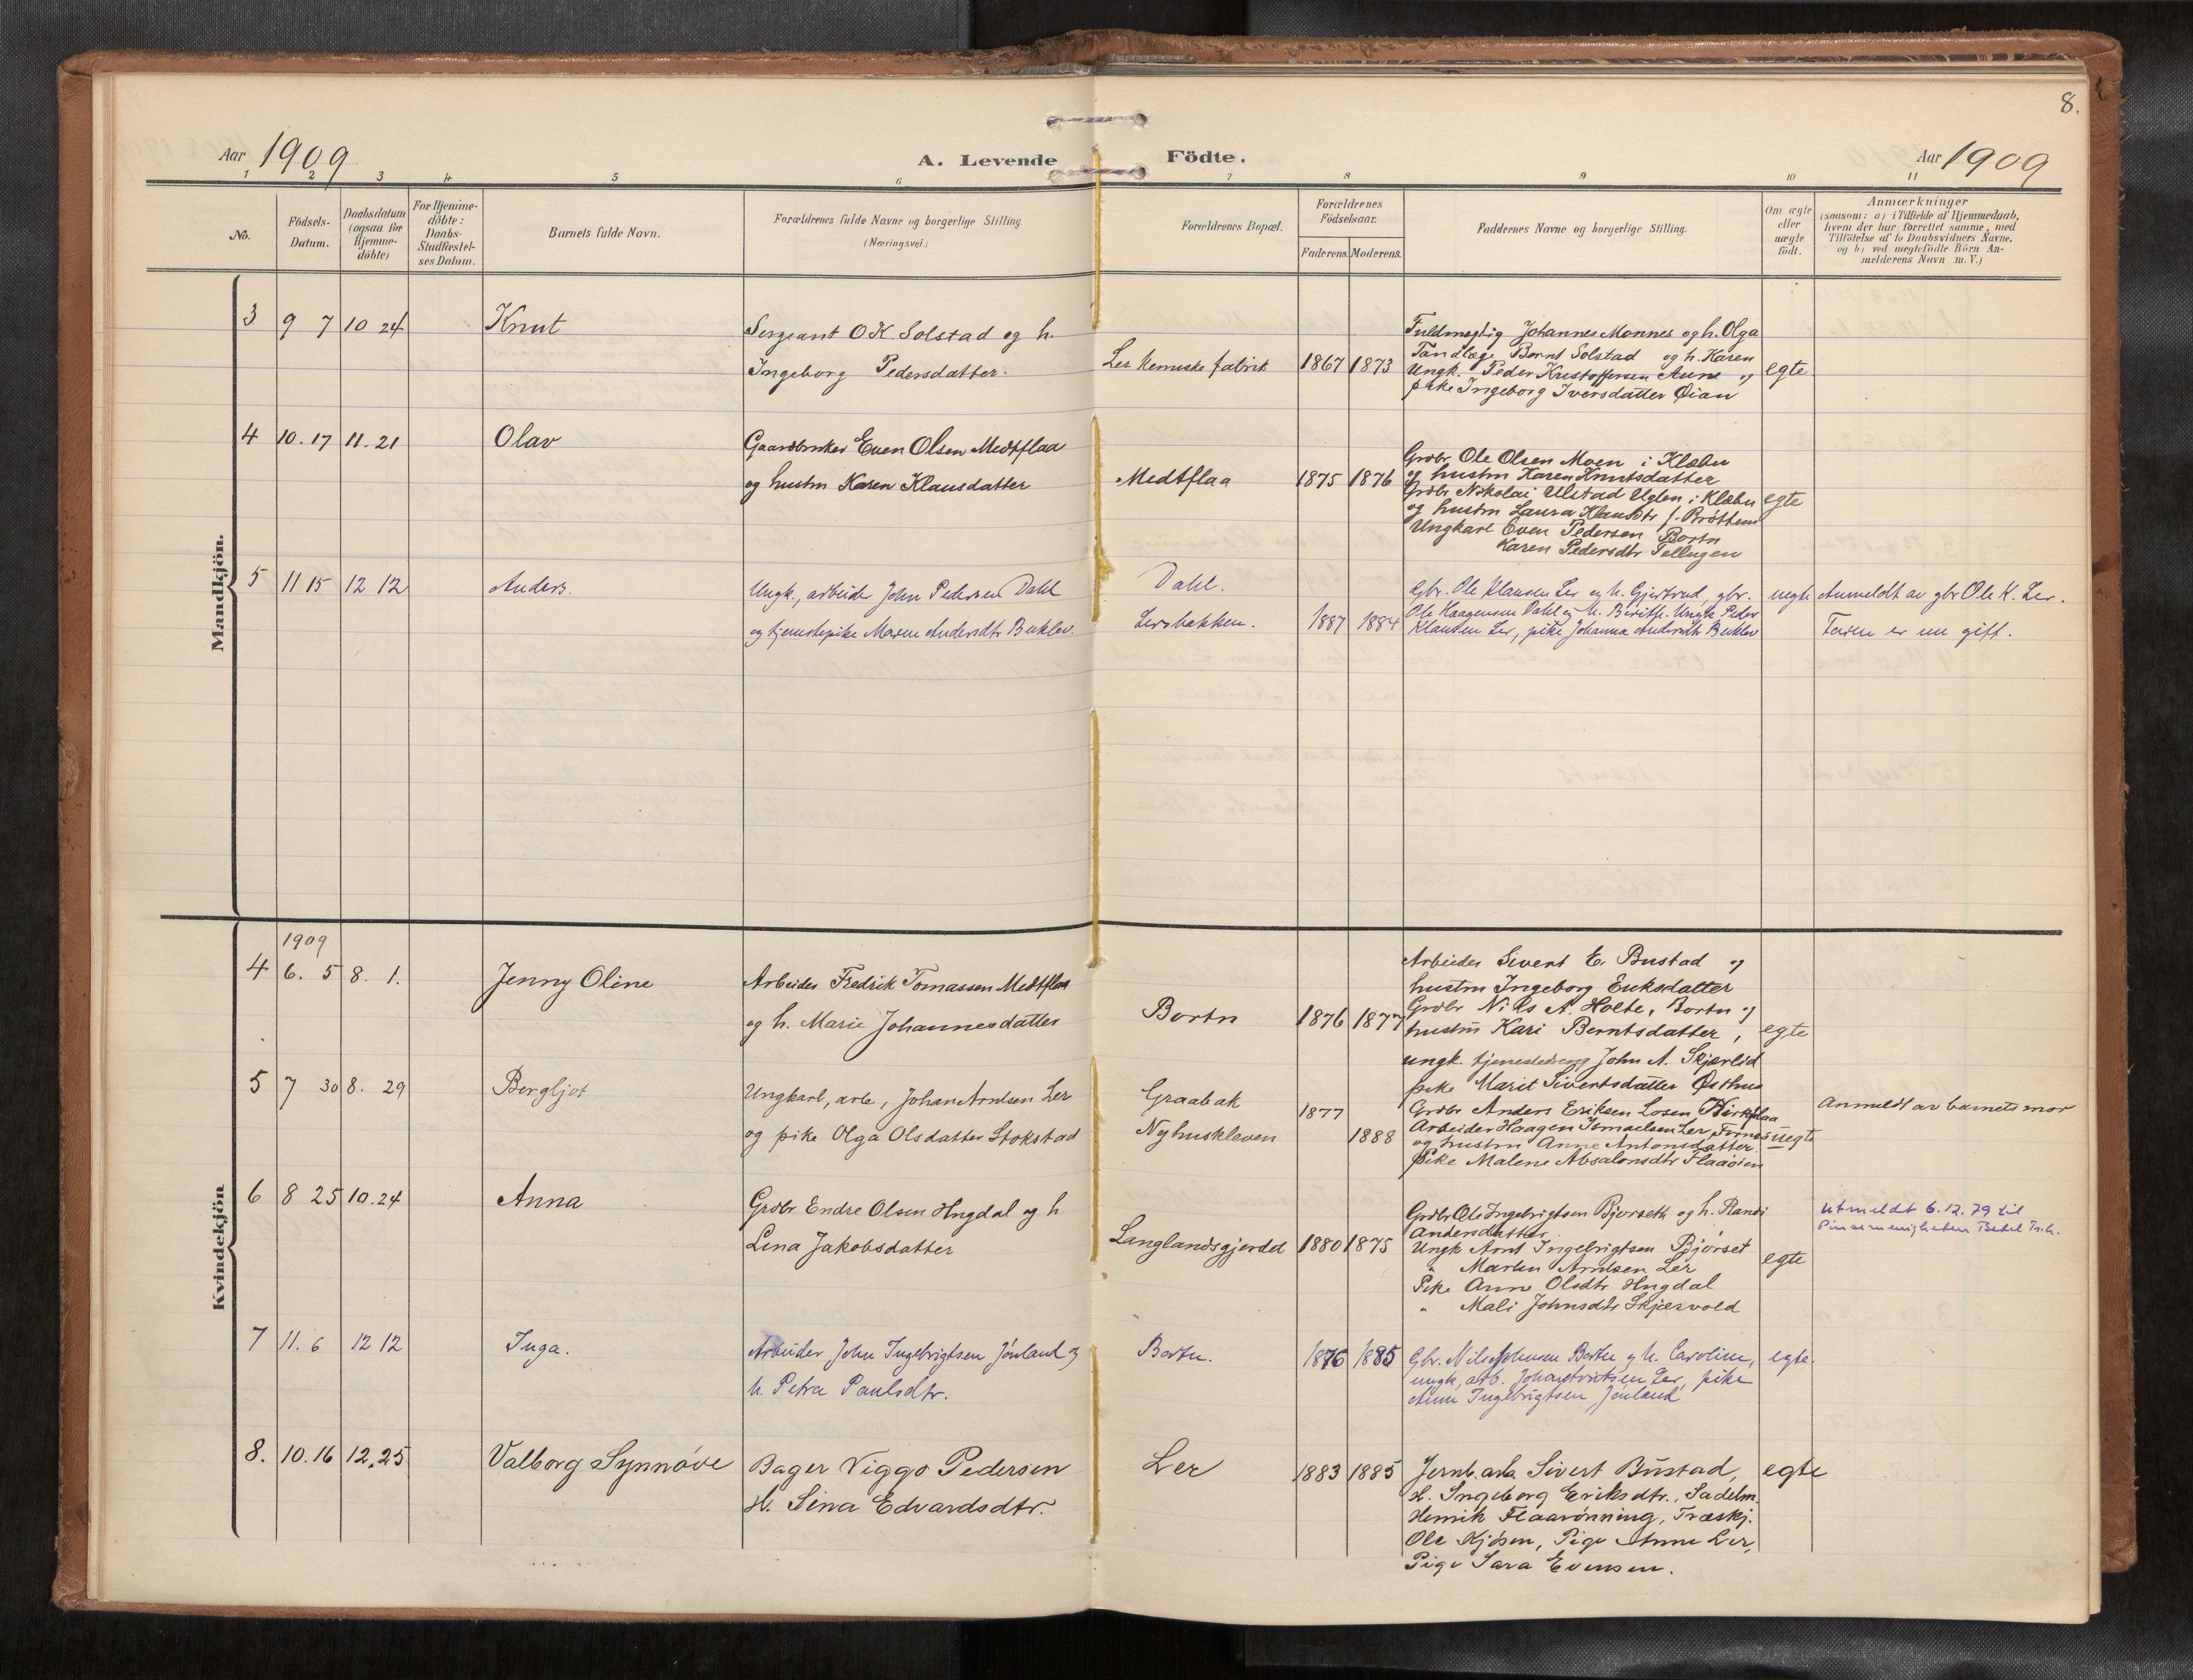 8.
Aar 1909
A. Levende Födte.
Aar 1909
1 2 3 4 5 6 7 8 9 10 11
No.
Födsels-
Datum.
Daabsdatum
(ogsaa for
Hjemme-
döbte)
For Hjemme-
döbte:
Daabs-
Stadfæstel-
ses Datum.
Barnets fulde Navn.
Forældrenes fulde Navne og borgerlige Stilling
(Næringsvei.)
Forældrenes Bopæl.
Forældrenes
Födselsaar.
Faderens. Moderens.
Faddernes Navne og borgerlige Stilling.
Om ægte
eller
uægte
födt.
Anmærkninger
(saasom: a) i Tilfælde af Hjemmedaab,
hvem der har forrettet samme, med
Tilföielse af to Daabsvidners Navne.
og b) ved uegtefödte Börn An-
melderens Navn m. V.)
Mandkjön.
3 9 7 10 24 Knut
Sergeant O K Solstad og h.
Ingeborg Pedersdatter.
Ler kemiske fabrik 1867 1873
Fuldmegtig Johannes Monnes og h. Olga
Tandlæge Bernt Solstad og h. Karen
Ungk. Peder Kristoffersen Aune og
pike Ingeborg Iversdatter Øian
egte
4 10.17 11.21 Olav
Gaardbruker Even Olsen Medtflaa
og hustru Karen Klausdatter
Medtflaa 1875 1876
Grdbr Ole Olsen Moen i Klæbu
og hustru Karen Knutsdatter
Grdbr Nikolai Ulstad Uglen i Klæbu
og hustru Laura Klausdtr f. Brøttem
Ungkarl Even Pedersen Bortn
Karen Pedersdtr Tellugen
egte
5 11 15 12 12 Anders.
Ungk., arbeider John Pedersen Dahl
og tjenestepike Maren Andersdtr Buklev.
Dahl.
Lersbakken. 1887 1884
Gbr. Ole Klausen Ler og h. Gjertrud, gbr.
Ole Haagensen Dahl og h. Berith. Ungk. Peder
Klausen Ler, pike Johanna Andersdtr Buklev
uegte
Anmeldt av gbr Ole K. Ler.
Faren er nu gift.
Kvindekjön
1909
4 6. 5 8. 1. Jenny Oline
Arbeider Fredrik Tomassen Medtflaa
og h. Marie Johannesdatter
Bortn 1876 1877
Arbeider Sivert E. Bustad og
hustru Ingeborg Eriksdatter
Grdbr Nils A. Holte, Bortn og
hustru Kari Berntsdatter,
ungk. tjenestedreng John A. Skjærlid
pike Marit Sivertsdatter Østhus
egte
5 7 30 8. 29 Bergljot
Ungkarl, arb., Johan Arntsen Ler
og pike Olga Olsdatter Stokstad
Graabak
Nyhuskleven
1877
1888
Grdbr Anders Eriksen Losen Kirkflaa
Arbeider Haagen Ismaelsen Ler, Fornes
og hustru Anne Antonsdatter.
Pike Malene Absalonsdtr Flaaøien
uegte
Anmeldt av barnets mor
6 8 25 10.24 Anna
Grdbr Endre Olsen Hugdal og h
Lina Jakobsdatter
Langlandsgjerdet 1880 1875
Grdbr Ole Ingebrigtsen Bjørseth og h. Randi
Andersdatter
Ungk Arnt Ingebrigtsen Bjørset
" Martin Arntsen Ler
Pike Anne Olsdtr Hugdal
" Mali Johnsdtr Skjærvold
egte
Utmeldt 6.12.79 til
Pinsemenigheten Betel Tr.h.
7 11. 6 12 12 Inga.
Arbeider John Ingebrigtsen Jønland og
h. Petra Paulsdtr.
Bortn. 1876 1885
Gbr. Nils Johnsen Bortn og h. Caroline,
ungk, arb. Johan Arntsen Ler, pike
Anne Ingebrigtsen Jønland
egte.
8. 10.16 12.25 Valborg Synnøve
Bager Viggo Pedersen
H. Sina Edvardsdtr.
Ler 1883 1885
Jernb. arb. Sivert Bustad,
H. Ingeborg Eriksdtr., Sadelm.
Henrik Flaarønning, Træskj.
Ole Kjøsen, Pige Anne Ler,
Pige Sara Evensen.
egte